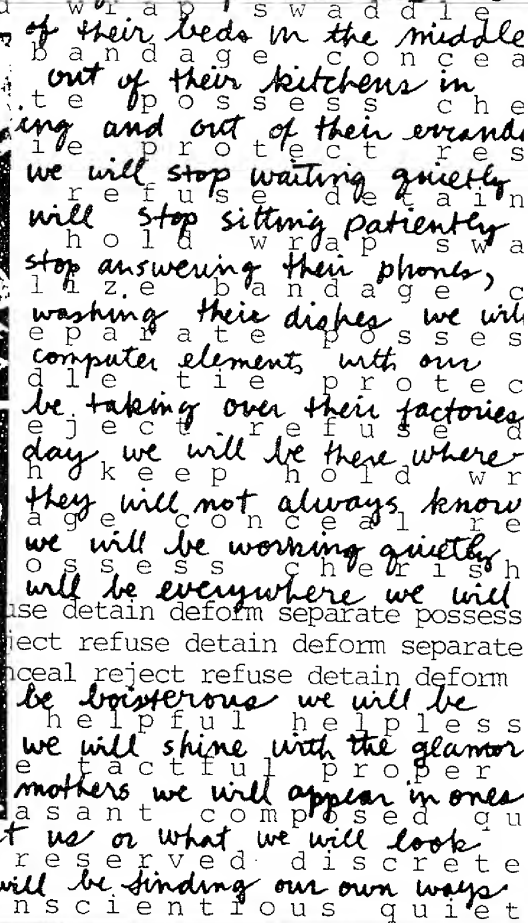 u w r a p s w a d d l e
of their beds in the middle
b a n d a g e c o n c e a
out of their kitchens in
t e p o s s e s s c h e
ing and out of their errands
i e p r o t e c t r e s
we will stop waiting quietly
r e f u s e d e t a i n
will stop sitting patiently
h o l d w r a p s w a
stop answering their phones,
l i z e b a n d a g e c
washing their dishes we will
e p a r a t e p o s s e s
computer elements with our
d l e t i e p r o t e c
be taking over their factories
e j e c t r e f u s e d
day we will be there where
h k e e p h o l d w r
they will not always know
a g e c o n c e a l r e
we will be working quietly
o s s e s s c h e r i s h
will be everywhere we will
use detain deform separate possess
ject refuse detain deform separate
nceal reject refuse detain deform
be boisterous we will be
h e l p f u l h e l p l e s s
we will shine with the glamor
e t a c t f u l p r o p e r
mothers we will appear in ones
a s a n t c o m p o s e d q u
t us or what we will look
r e s e r v e d d i s c r e t e
will be finding our own ways
n s c i e n t i o u s q u i e t